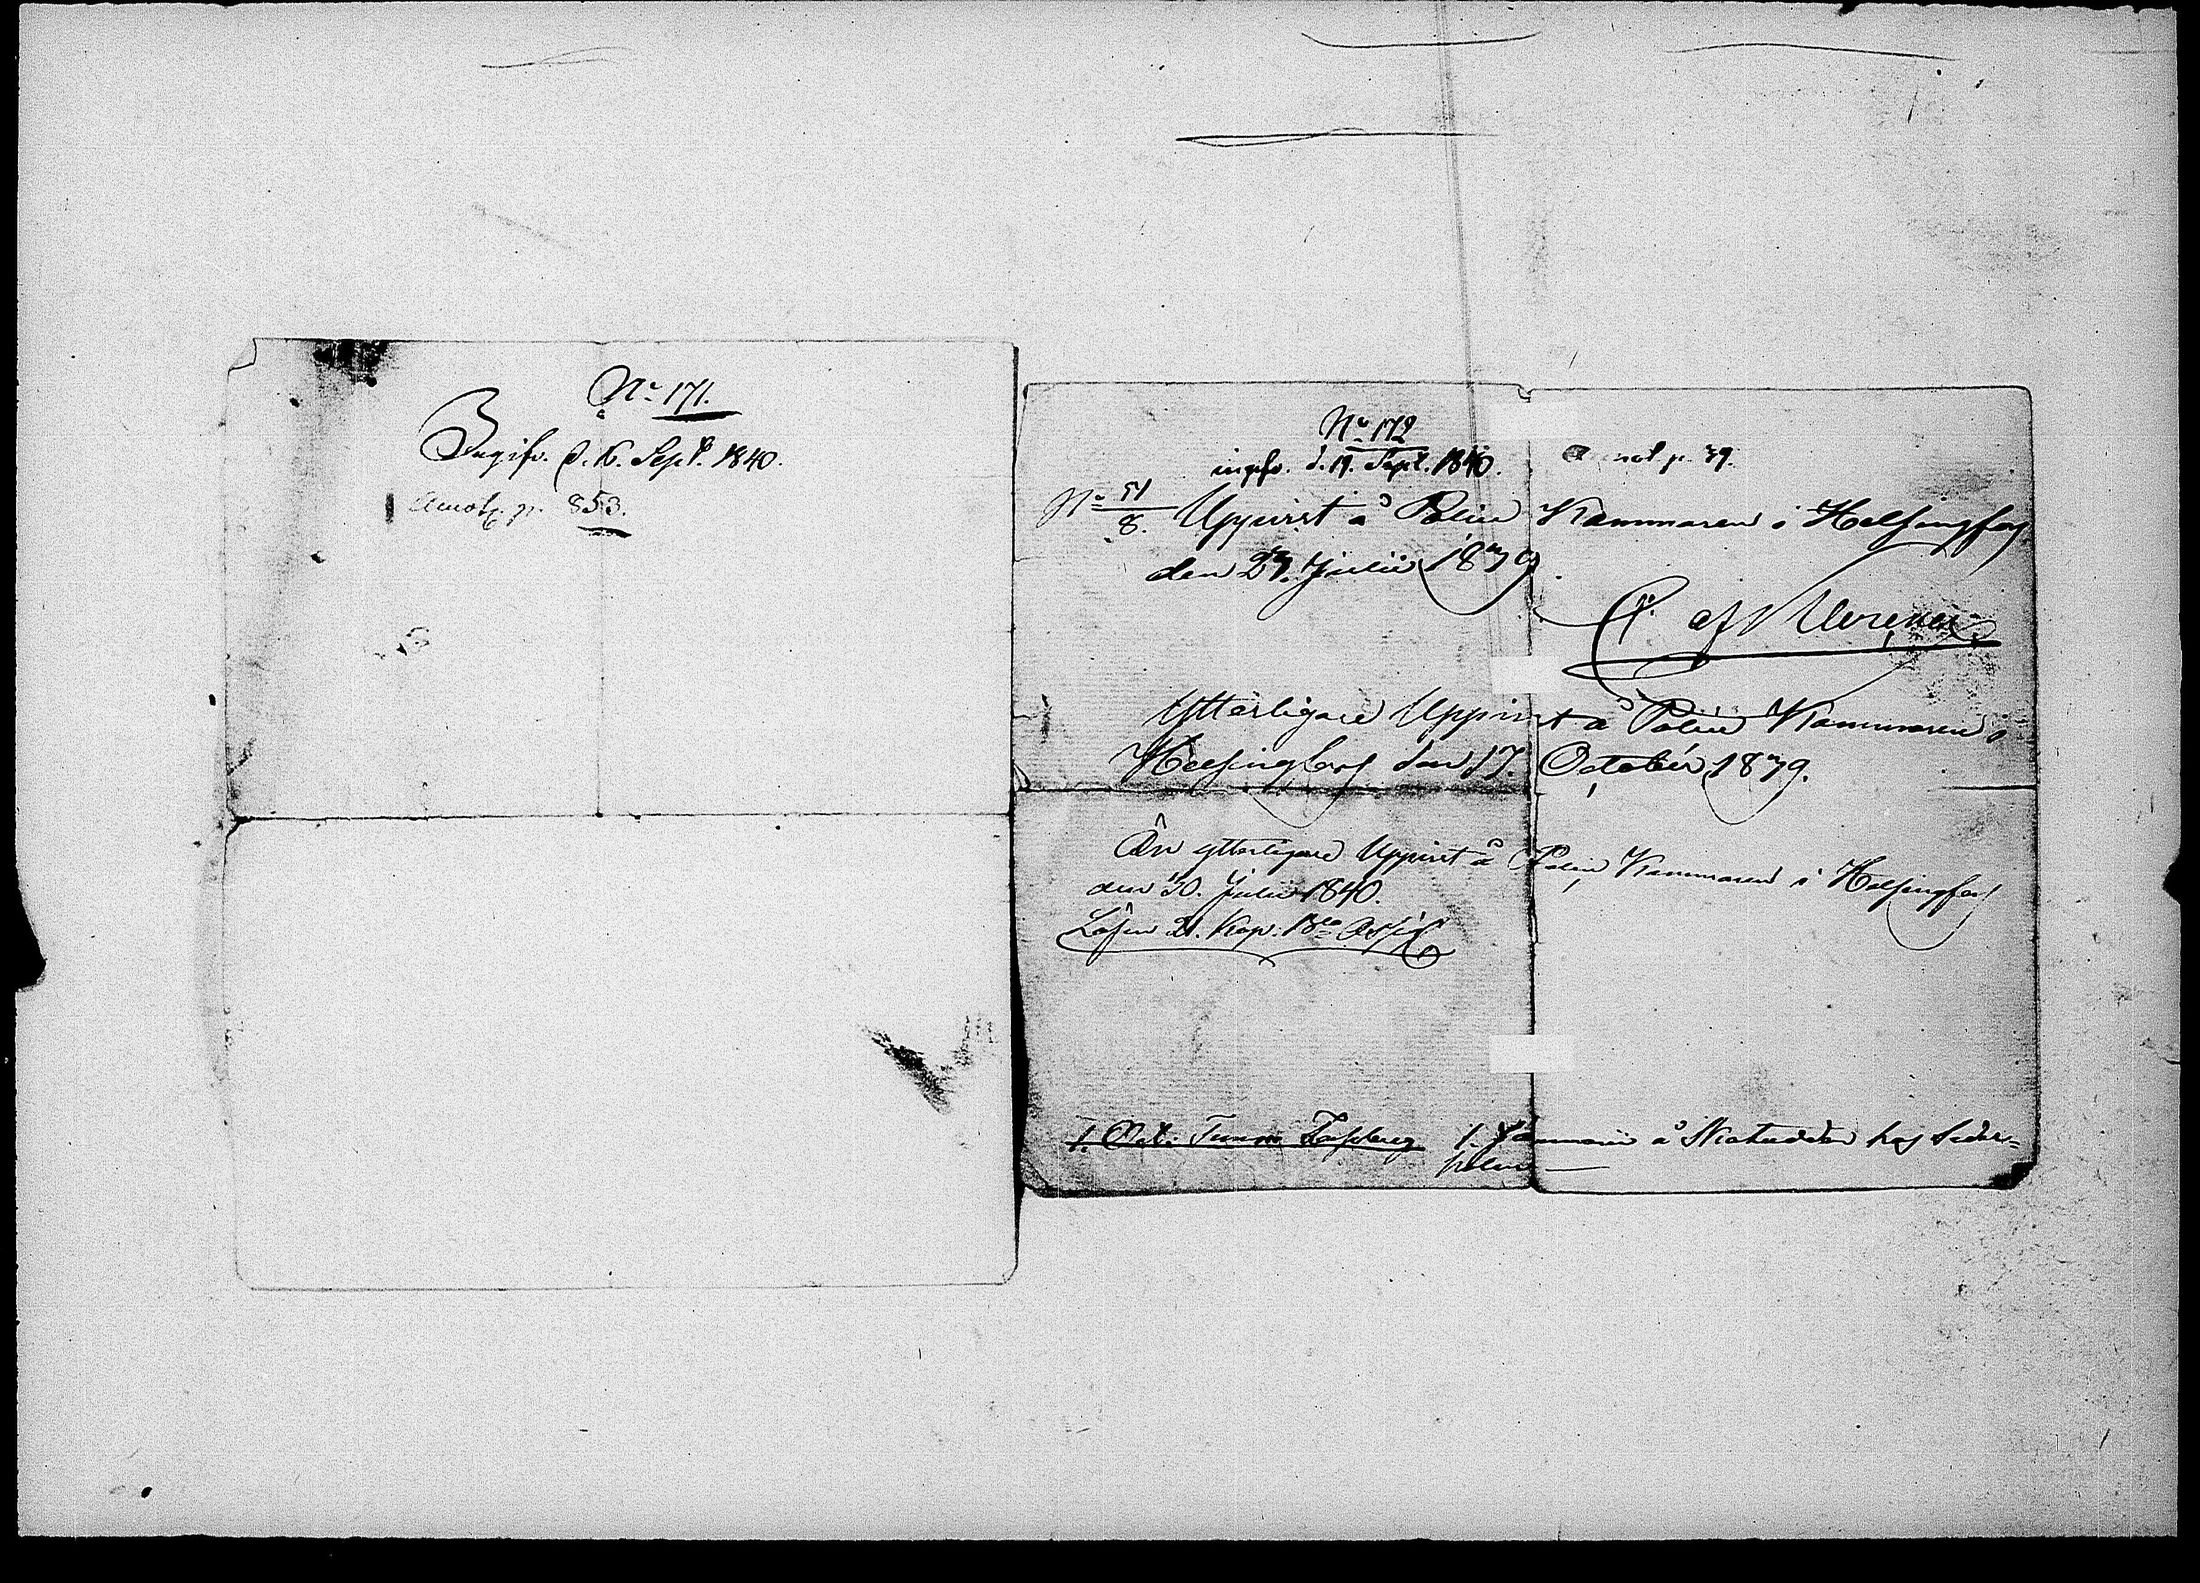 No 171.
Ingifv. d. 16. Sept. 1840.
Annot. p. 853.
No 172
ingifv. d. 19. Sept. 1840.
Annot p. 39.
No 51/8. Uppvist å Polis Kammaren i Helsingfors
den 27. Julii 1839
af
Ytterligare Uppvist å Polis Kammaren i
Helsingfors den 17. October 1839.
Än ytterligare Uppvist å Polis Kammaren i Helsingfors
den 30. Julii 1840.
21. Kap.
1. Oct. å Skatudden hos Seder=
holm